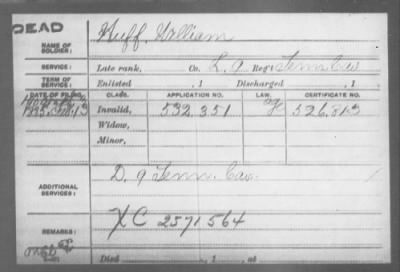 DEAD
Huff, William
NAME OF SOLDIER:
SERVICE: Late rank, Co. L, 9 Reg't Tenn. Cav.
TERM OF SERVICE: Enlisted , 1 Discharged , 1
DATE OF FILING. CLASS. APPLICATION NO. LAW. CERTIFICATE NO.
Invalid, 532.351 526.813
Widow,
Minor,
ADDITIONAL SERVICES: D. 9 Tenn. Cav.
REMARKS: XC 2571564
Died , 1 , at